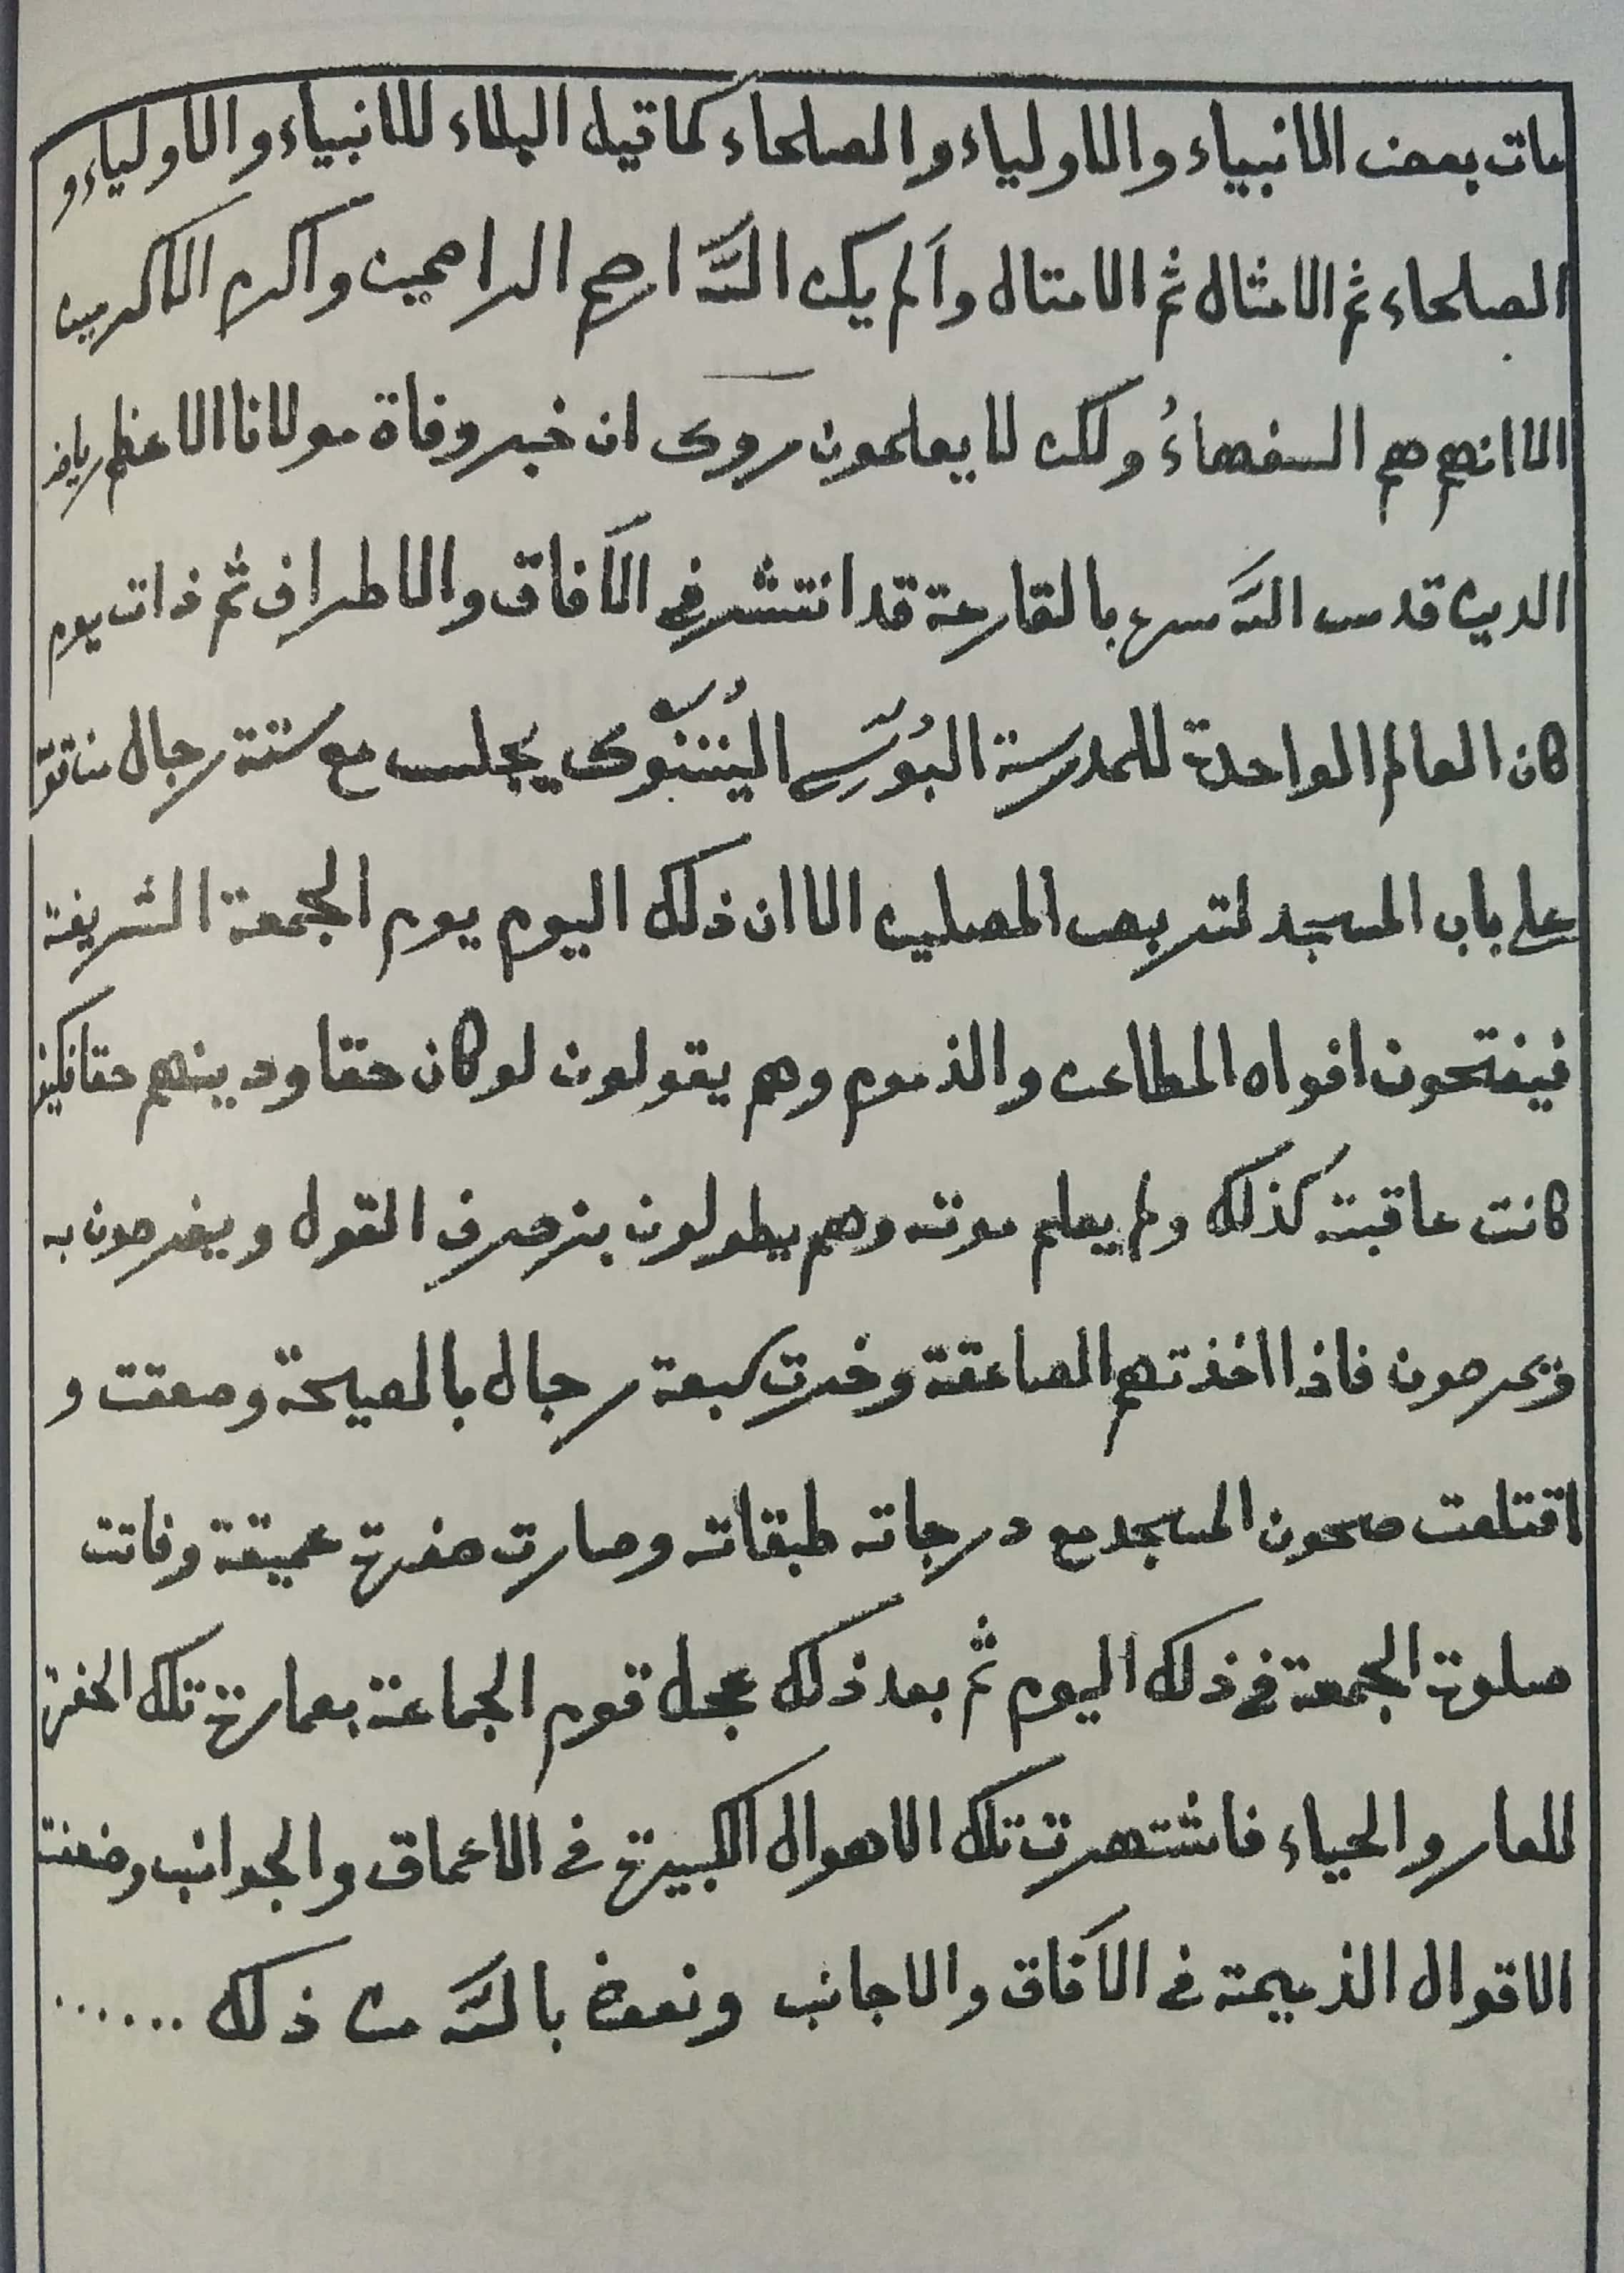 مات بعض الانبياء والاولياء والصلحاء كما قيل البلاء للانبياء والاولياء و
الصلحاء ثم الامثال ثم الامثال وألم يكن اللّه ارحم الراحمين واكرم الاكرمين
الا انهم هم السفهاءُ ولكن لا يعلمون روى ان خبر وفاة مولانا الاعظم رياض
الدين قدس اللّه سره بالقارعة قد انتشر في الآفاق والاطراف ثم ذات يوم
كان العالم الواحدة للمدرسة يجلس مع ستة رجال
على باب المسجد لتربص المصلين الا ان ذلك اليوم يوم الجمعة الشريفة
فيفتحون افواه المطاعن والذموم وهم يقولون لو كان حقا ودينهم حقا
كانت عاقبته كذلك ولم يعلم موته وهم يطولون بزحرف القول ويفرحون به
ويحرصون فاذا اخذتهم الصاعقة وخرت سبعة رجال بالصيحة وصعقت و
اقتلعت صحون المسجد مع درجاته طبقاته وصارت حفرة عميقة وفاتت
صلوة الجمعة في ذلك اليوم ثم بعد ذلك عجل قوم الجماعة بعمارة تلك الحفرة
للعار والحياء فاشتهرت تلك الاهوال الكبيرة في الاعماق والجوانب وضعنت
الاقوال الذميمة في الآفاق والاجانب ونعوذ باللّه من ذلك ......